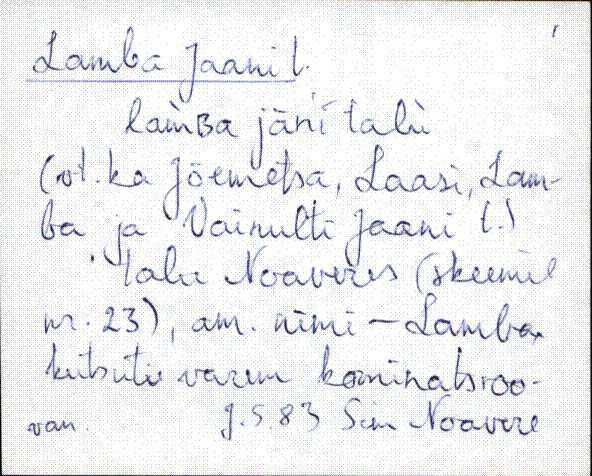 Lamba Jaani t.
lamba jāni talu
(vt. ka Jõemetsa, Laasi, Lam-
ba ja Vainulti Jaani t.)
talu Noaveres (skeemil
nr. 23), am. nimi – Lamba,
kutsuti varem
van. J.S. 83 Sim Noavere